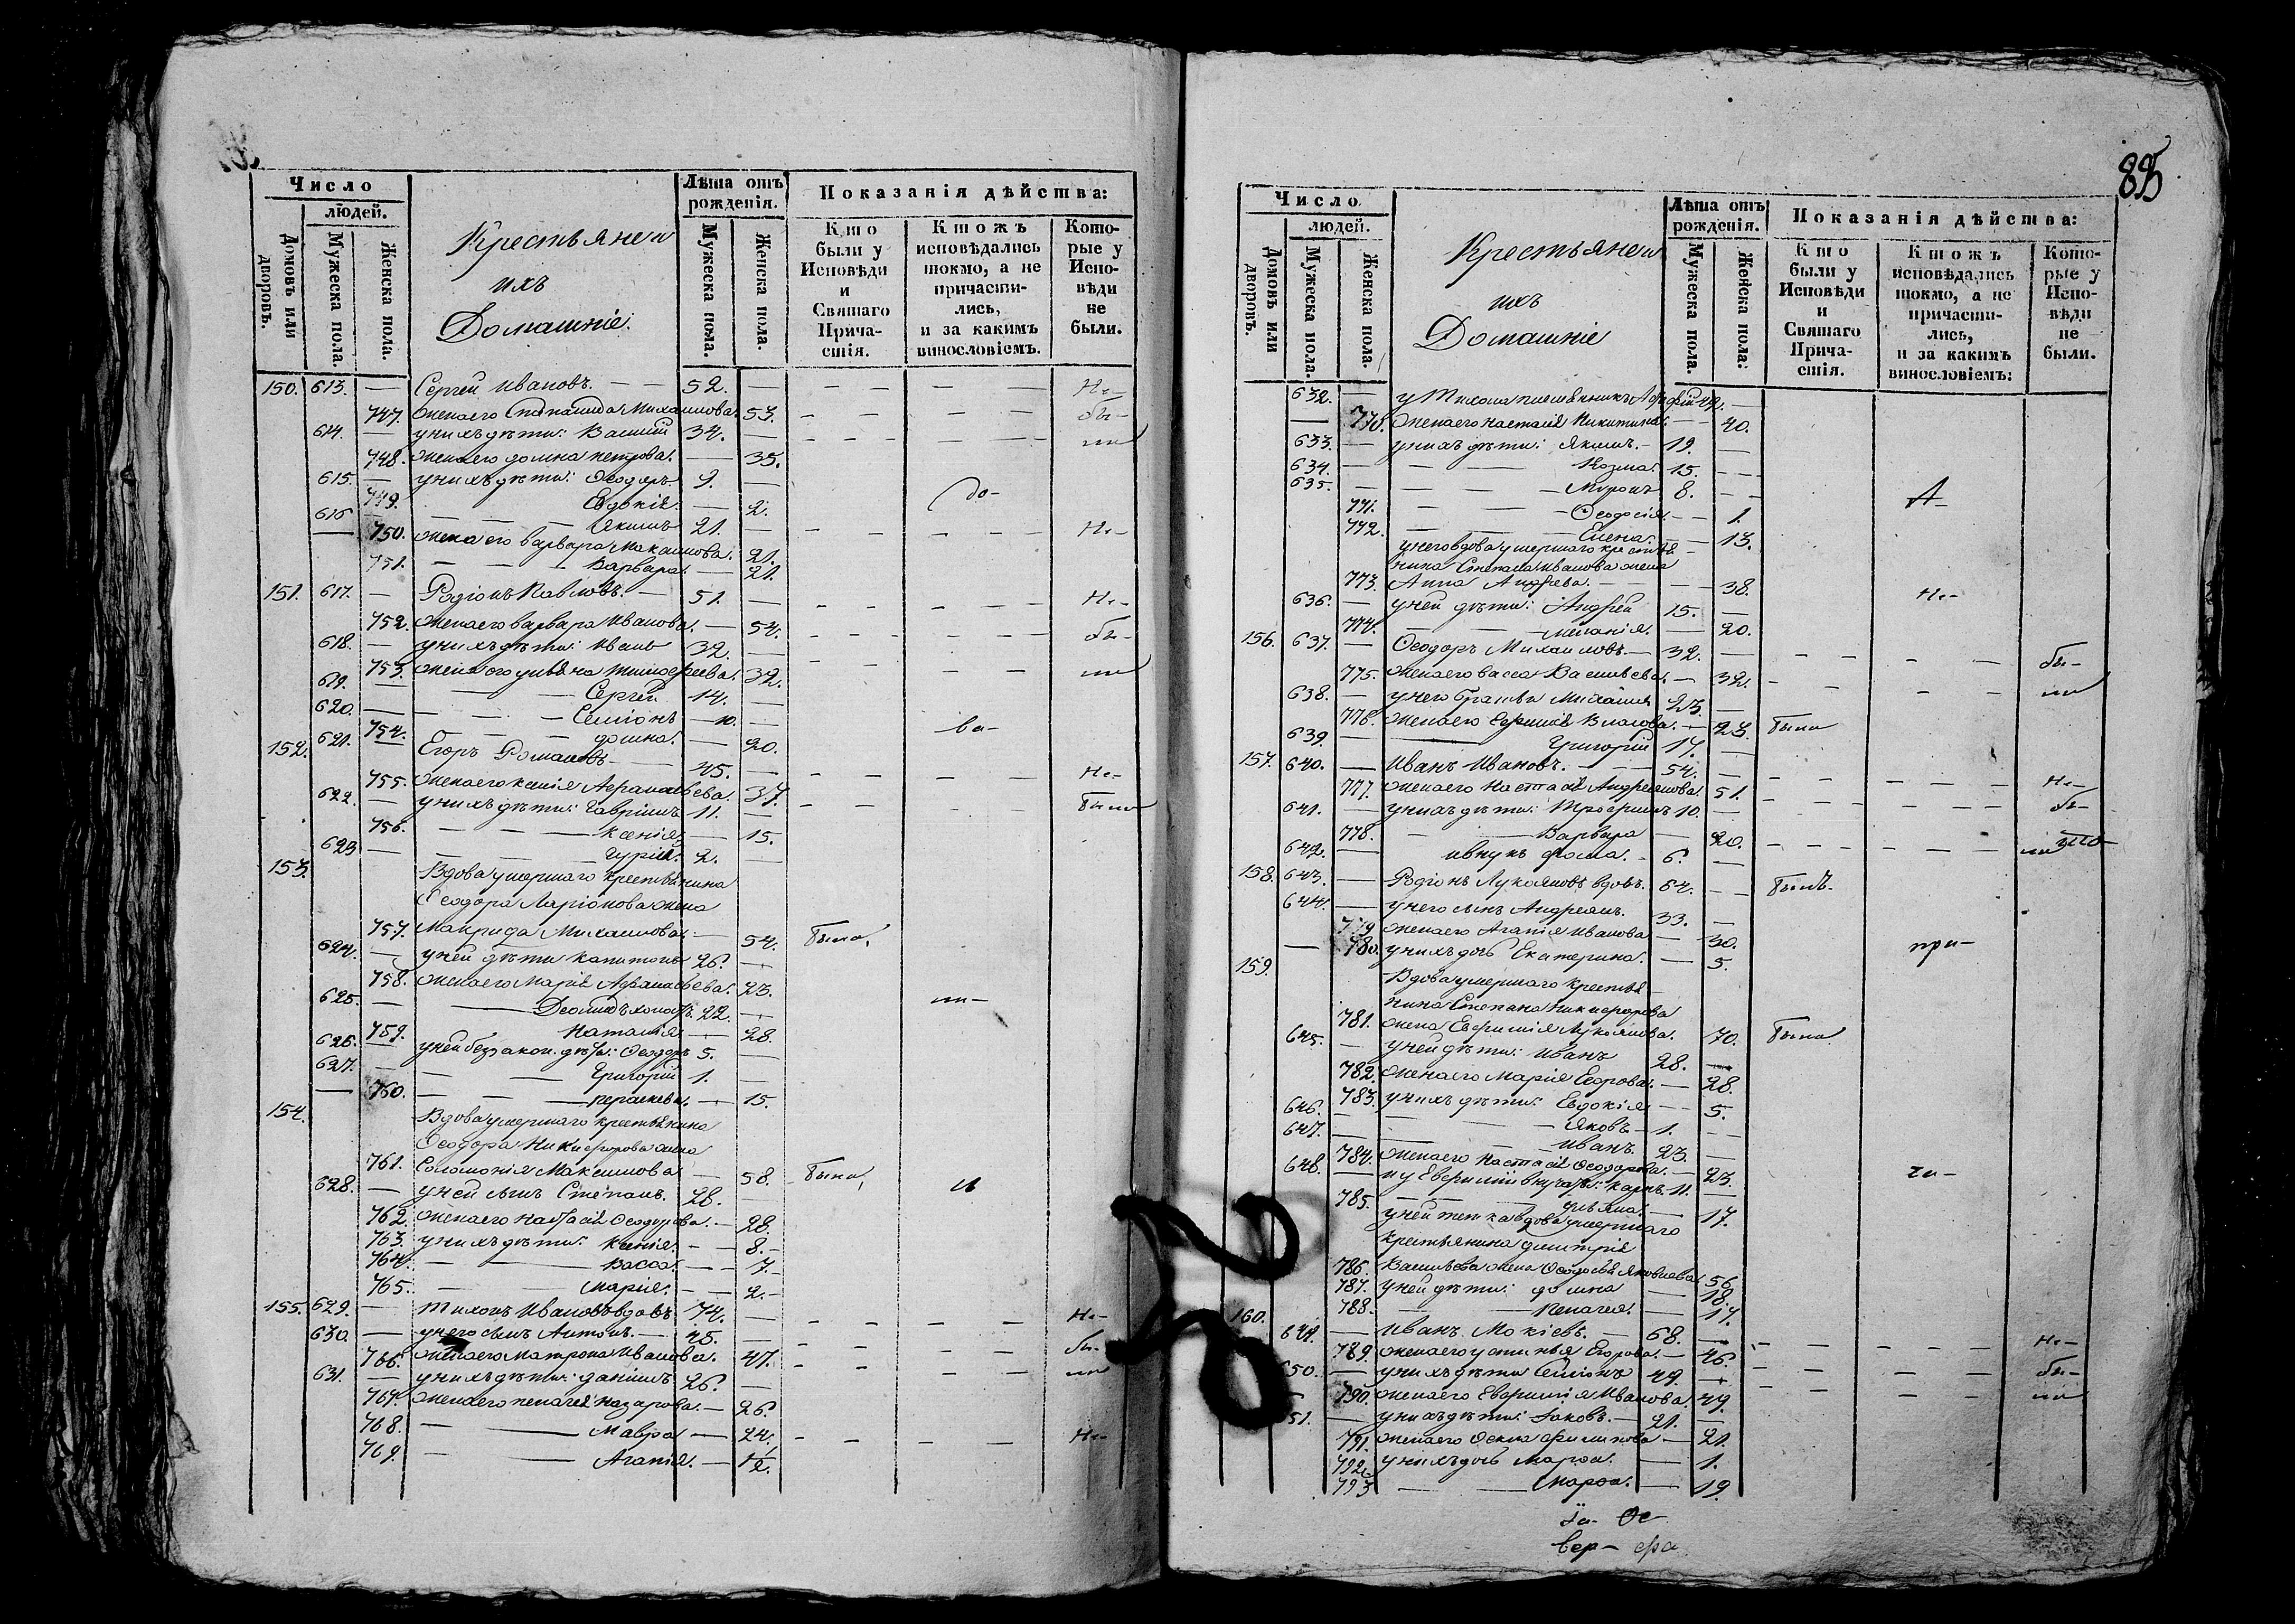 Число
людей.
Домовъ или дворовъ.
Мужеска пола.
Женска пола.
Крестьяне и
ихъ
Домашніе.
Лѣта отъ рожденія.
Мужеска пола.
Женска пола.
Показанія дѣйства:
Кто были у Исповѣди и Святаго Прича-стія.
Ктожъ исповѣдались токмо, а не причасти-лись, и за какимъ винословіемъ.
Кото-рые у Испо-вѣди не были.
150. 613. — Сергей Ивановъ. — — 52. — Не-
747. жена его Михаилова. 53. бы-
614. — у нихъ дѣти: Василій 34. — ли
748. жена его Домна Петрова. — 35.
615. — у нихъ дѣти: Ѳеодоръ. 9. —
749. Евдокія. — 2. до-
616 — — — Якимъ 21. — Не-
— 750. жена его Варвара Максимова. 21.
751. — — — Варвара. — 21.
151. 617. — Родіонъ Павловъ. — 51. — Не-
752. жена его Варвара Иванова. — 54. бы-
618. — у нихъ дѣти: Иванъ 32. —
753. жена его Ульяна Тимофеева. 32. ли
619. — — — Сергей 14. —
620. — — — Семіонъ — 10. —
754. — — — Домна. — 20. ва-
152. 621. Егоръ Романовъ — 45. — Не-
755. жена его Ксенія Афанасьева. 37. были
622. — у нихъ дѣти: Гавріилъ 11. —
756. — — — Ксенія — 15.
623 — — — Гурій. 2. —
153. Вдова умершаго крестьянина
Ѳеодора Ларіонова жена
757. Макрида Михаилова. — 54. была,
624. — у ней дѣти Капитонъ 26. —
758. жена его Марія Афанасьева. 23.
625. — — Деомидъ холостъ. 22. — ни-
759. Наталія — 28.
626. — у ней беззакон. дѣти: Ѳеодоръ 5. —
627. — — — Григорій 1. —
— 760. — — Пераскева. — 15.
154. Вдова умершаго крестьянина
Ѳеодора Никифорова жена
761. Соломонія Максимова — 58. была,
628. — у ней сынъ Степанъ. 28. — и
762. жена его Настасія Ѳеодорова. — 28.
763. у нихъ дѣти: Ксенія. — — 8. —
764. — — Васса. — — 7. —
765. — — Марія. — — 2. —
155. 629. — Тихонъ Ивановъ вдовъ. 74. — Не-
630. — у него сынъ Антонъ. — 45. — бы-
766. жена его Матрона Иванова. 47.
631. — у нихъ дѣти: Даніилъ 26. — ли
767. жена его Пелагея Назарова. — 26.
768. — — Мавра — 24. Не-
769. — — Агапія. —
85
Число
людей.
Домовъ или дворовъ.
Мужеска пола.
Женска пола.
Крестьяне и
ихъ
Домашніе
Лѣта отъ рожденія.
Мужеска пола.
Женска пола:
Показанія дѣйства:
Кто были у Исповѣди и Святаго Прича-стія.
Ктожъ исповѣдались токмо, а не причасти-лись, и за какимъ винословіемъ:
Кото-рые у Испо-вѣди не были.
632. — у Тихона племянникъ
— 770. жена его Настасія Никитина. — — 40.
633. — у нихъ дѣти: Якимъ. — 19. —
634. — — — Козма. 15. — —
635. — — — Миронъ 8. — —
771. — — — Ѳеодосія. — 1.
772. — — Елена. — — 13.
у него вдова умершаго крестья-
нина Степана Иванова жена
773. Анна Андреева. — — — 38.
636. — у ней дѣти: Андрей 15. — Не-
774. — — — Меланія. — 20.
156. 637. — Ѳеодоръ Михаиловъ. — 32. — бы-
775. жена его Васса Васильева. — 32.
638. — у него братья Михаилъ 23. — ли
776. жена его Власова. — 23. была
639. — — Григорій 17. —
157. 640. — Иванъ Ивановъ. — — 54. — Не-
777. жена его Настасія Андреянова. 51. бы-
641. — у нихъ дѣти: Трофимъ 10. —
778. — — Варвара — 20.
642. — и внукъ Фома. — 6. — ли
158. 643. — Родіонъ Лукояновъ вдовъ. 64. — былъ.
644. — у него сынъ Андреянъ. 33. —
779 жена его Агапія Иванова — 30.
— 780. у нихъ дочь Екатерина. — 5. при-
159. Вдова умершаго крестья-
нина Степана Никифорова
781. жена Евфимія Лукоянова. 70. была
645. — у ней дѣти: Иванъ 28. —
782. жена его Марія Егорова. — 28.
783. у нихъ дѣти: Евдокія — 5.
646. — — — Яковъ — 1. —
647. — — — Иванъ. 23. —
784. жена его Настасія Ѳеодорова. — 23.
648. — и у Евфиміи внучата: Карпъ. 11. — ча-
785. — — Ульяна. — 17.
у ней тетка вдова умершаго
крестьянина Дмитрія
786. Васильева жена Ѳеодосья Яковлева. 56
787. у ней дѣти: Домна — 18.
788. — — Пелагея. — 17.
160. 649. — Иванъ Мокіевъ. — 68. — Не-
789. жена его Устинья Егорова. — 46.
650. — у нихъ дѣти Семіонъ 49. — бы-
790. жена его Евфимія Иванова. 49. ли
651. — у нихъ дѣти: Іаковъ. — 21. —
791. жена его Филипова — 21.
792. у нихъ дочь Марѳа. — 1.
793 — — Марѳа. — 19.